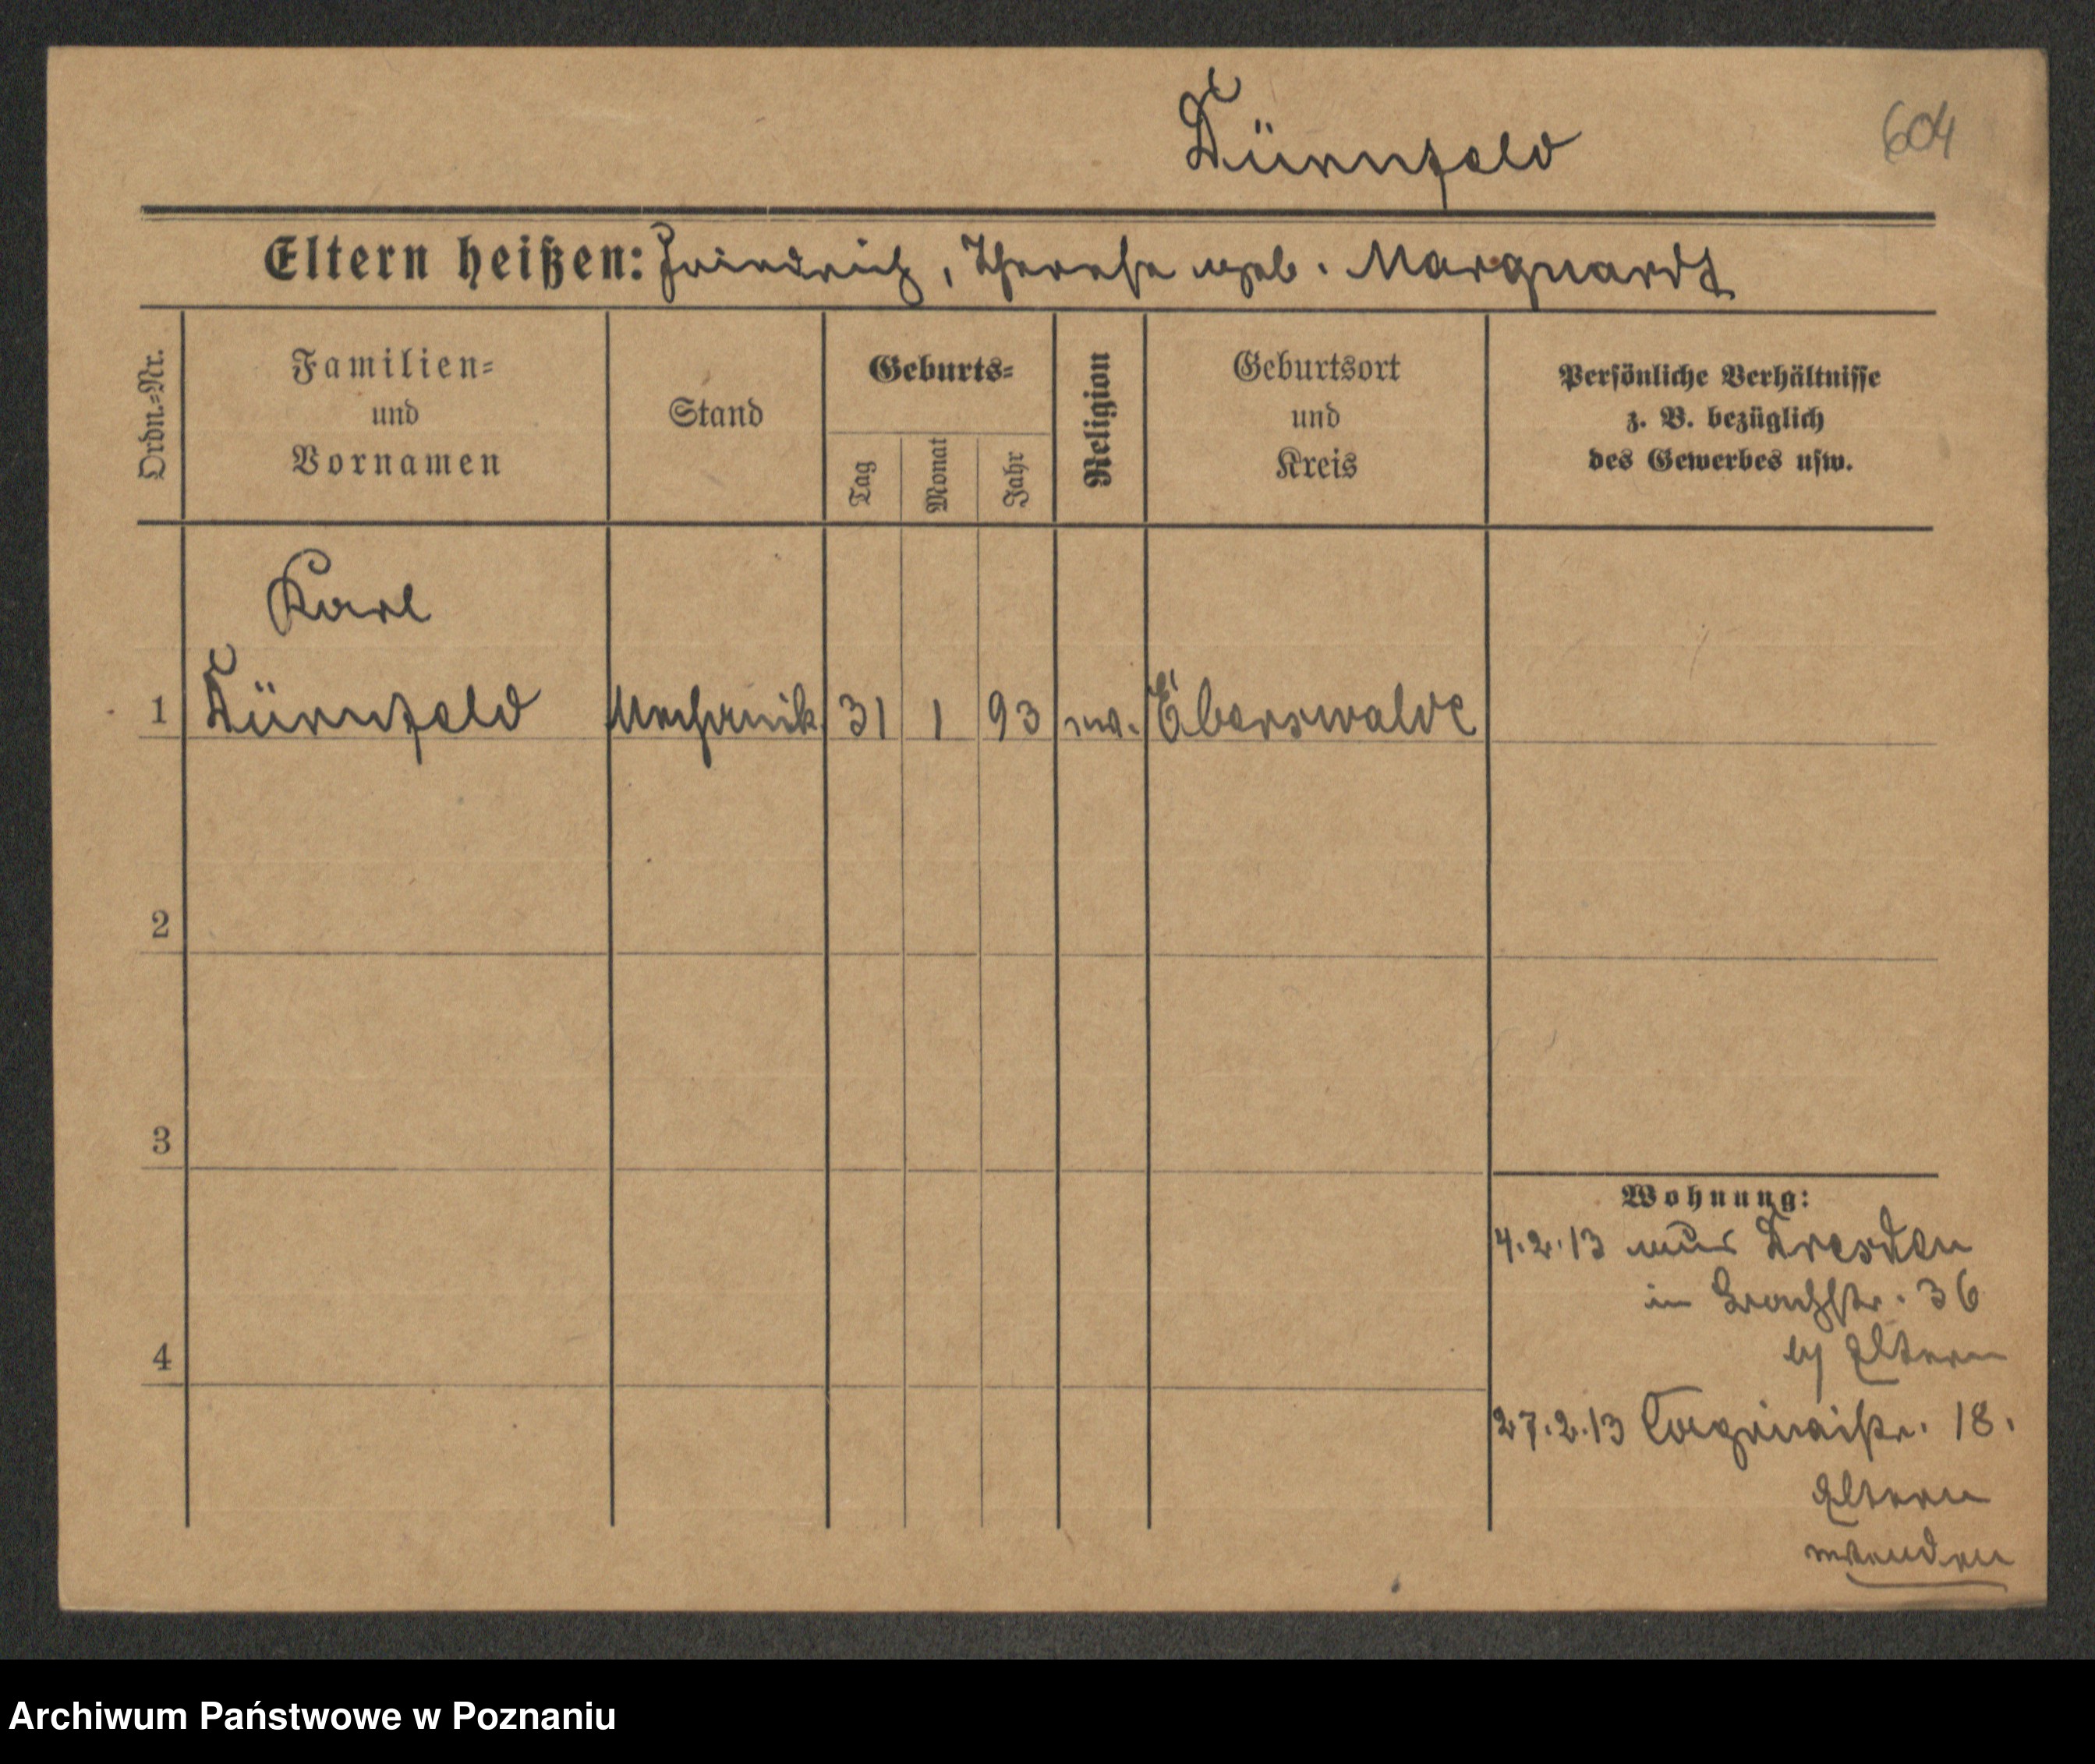 Dürrfeld
604
Eltern heißen: Friedrich, Therese geb. Marquardt
Ordn.-Nr.
Familien-
und
Vornamen
Stand
Geburts-
Tag
Monat
Jahr
Religion
Geburtsort
und
Kreis
Persönliche Verhältnisse
z. B. bezüglich
des Gewerbes usw.
Karl
1 Mechanik 31 1 93 ev. Eberswalde
2
3
Wohnung:
4.2.13 aus Dresden
in 36
by Eltern
4
27.2.13 18.
Eltern
wenden
Archiwum Państwowe w Poznaniu